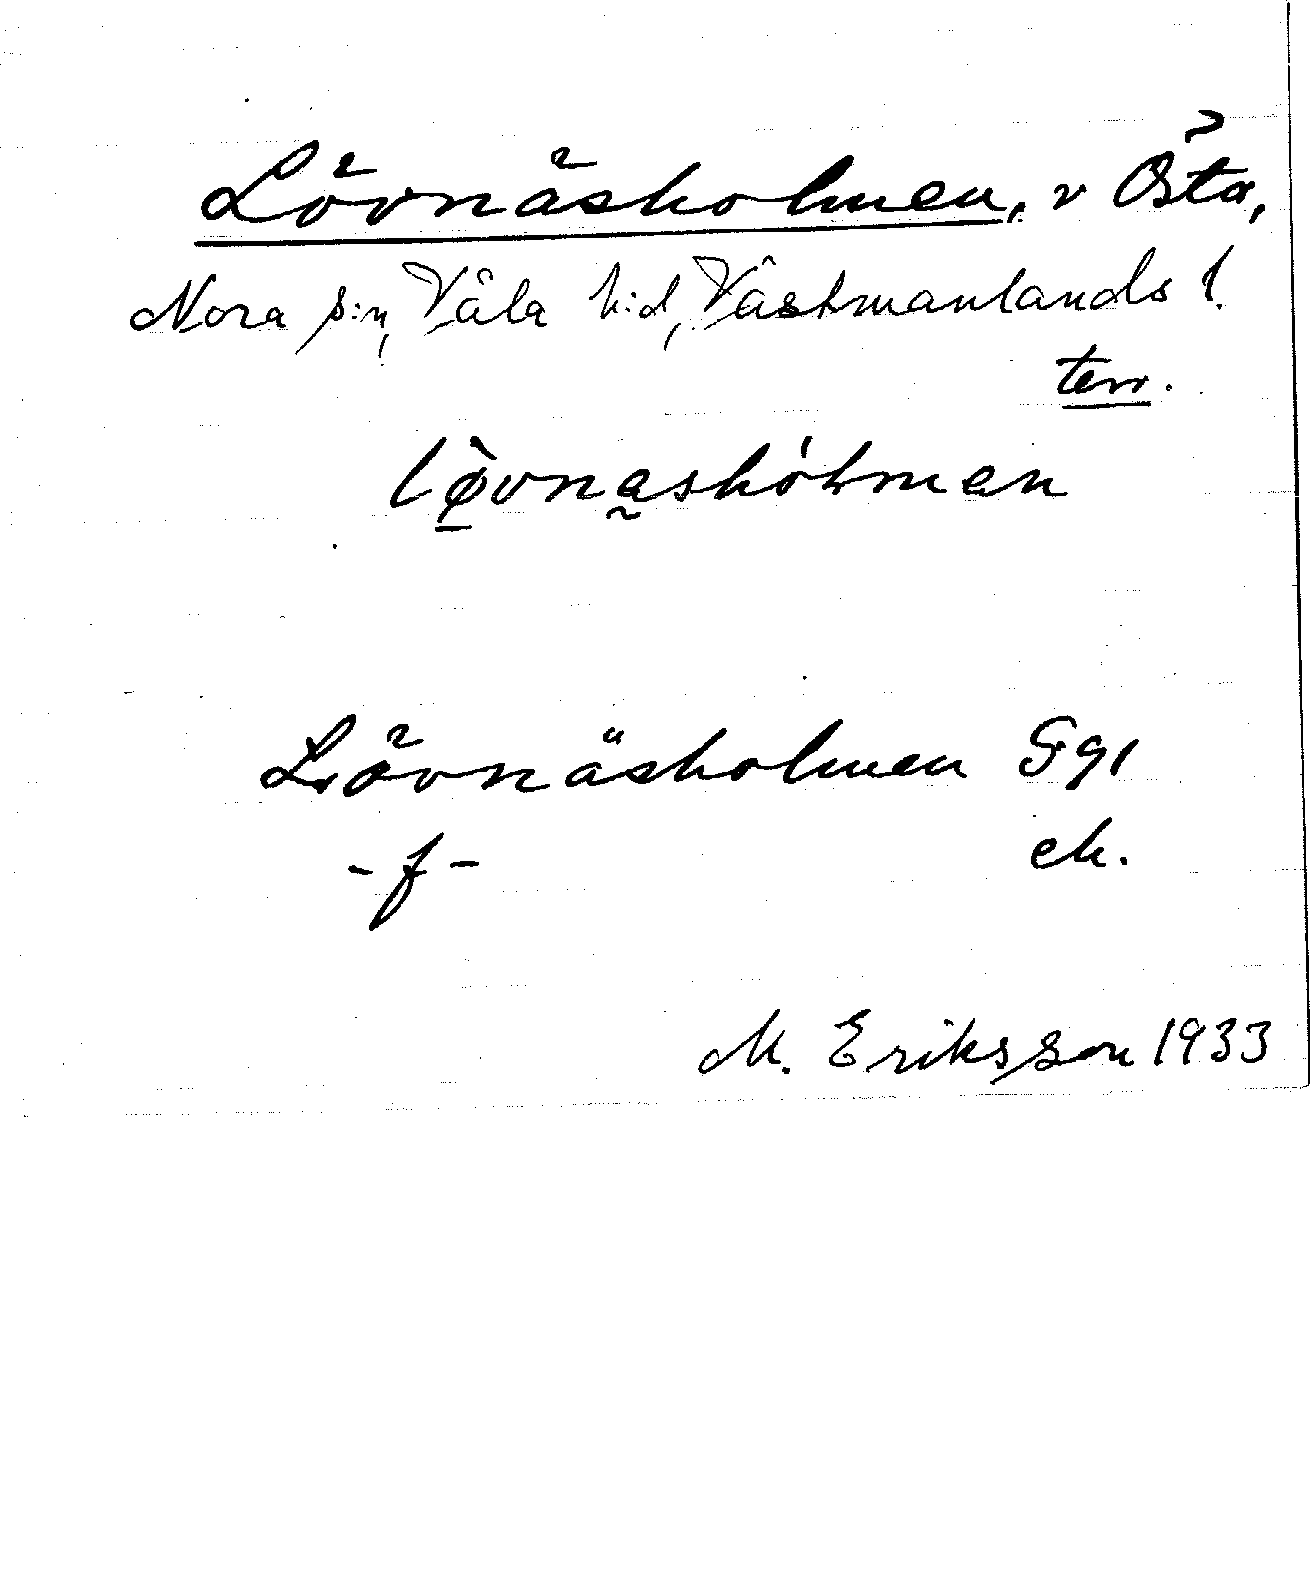 Lövnäsholmen, v Östa,
Nora s:n, Våla h:d, Västmanlands l.
terr.
lø̱̀vna̰shólmen
Lövnäsholmen G 91
- f - ek.
M. Eriksson 1933